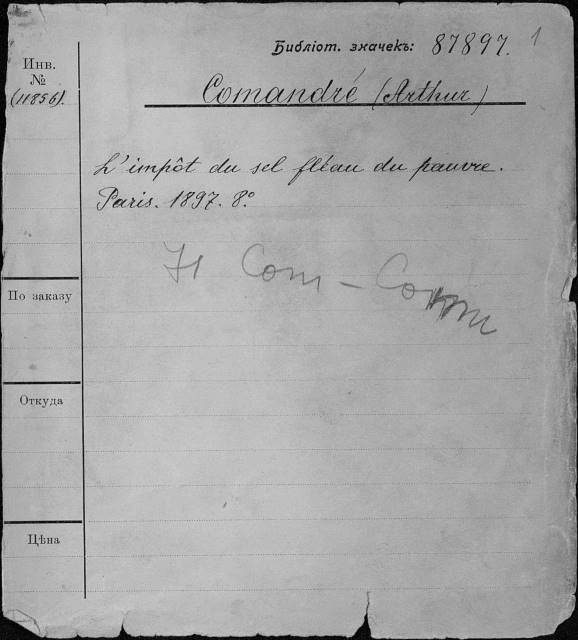 Библіот. значекъ: 87897. 1
Инв.
№
(11856).
Comandré (Arthur)
L'impôt du sel fléau du pauvre.
Paris. 1897. 8°.
Com – Comm
По заказу
Откуда
Цѣна